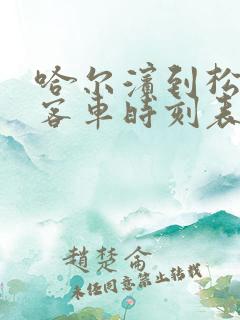 哈尔滨到松
客车时刻表
赵楚仑
未经同意禁止转载